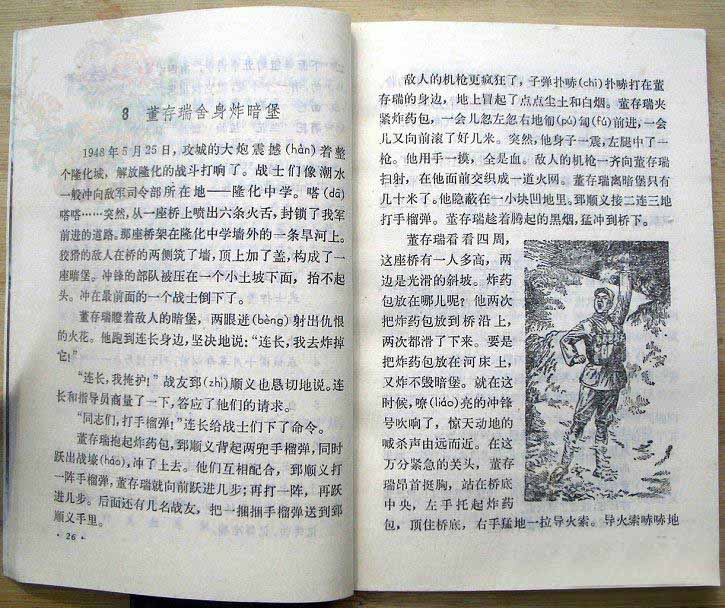 8 董存瑞舍身炸暗堡
1948年5月25日，攻城的大炮震撼(hàn)着整
个隆化城，解放隆化的战斗打响了。战士们像潮水
一般冲向敌军司令部所在地——隆化中学。嗒(dā)
嗒嗒……突然，从一座桥上喷出六条火舌，封锁了我军
前进的道路。那座桥架在隆化中学墙外的一条旱河上。
狡猾的敌人在桥的两侧筑了墙，顶上加了盖，构成了一
座暗堡。冲锋的部队被压在一个小土坡下面，抬不起
头。冲在最前面的一个战士倒下了。
董存瑞瞪着敌人的暗堡，两眼迸(bèng)射出仇恨
的火花。他跑到连长身边，坚决地说：“连长，我去炸掉
它！”
“连长，我掩护！”战友郅(zhì)顺义也恳切地说。连
长和指导员商量了一下，答应了他们的请求。
“同志们，打手榴弹！”连长给战士们下了命令。
董存瑞抱起炸药包，郅顺义背起两兜手榴弹，同时
跃出战壕(háo)，冲了上去。他们互相配合，郅顺义打
一阵手榴弹，董存瑞就向前跃进几步；再打一阵，再跃
进几步。后面还有几名战友，把一捆捆手榴弹送到郅
顺义手里。
·26·
敌人的机枪更疯狂了，子弹扑哧(chī)扑哧打在董
存瑞的身边，地上冒起了点点尘土和白烟。董存瑞夹
紧炸药包，一会儿忽左忽右地匍(pú)匐(fú)前进，一会
儿又向前滚了好几米。突然，他身子一震，左腿中了一
枪。他用手一摸，全是血。敌人的机枪一齐向董存瑞
扫射，在他面前交织成一道火网。董存瑞离暗堡只有
几十米了。他隐蔽在一小块凹地里。郅顺义接二连三地
打手榴弹。董存瑞趁着腾起的黑烟，猛冲到桥下。
董存瑞看看四周，
这座桥有一人多高，两
边是光滑的斜坡。炸药
包放在哪儿呢？他两次
把炸药包放到桥沿上，
两次都滑了下来。要是
把炸药包放在河床上，
又炸不毁暗堡。就在这
时候，嘹(liáo)亮的冲锋
号吹响了，惊天动地的
喊杀声由远而近。在这
万分紧急的关头，董存
瑞昂首挺胸，站在桥底
中央，左手托起炸药
包，顶住桥底，右手猛地一拉导火索。导火索哧哧地